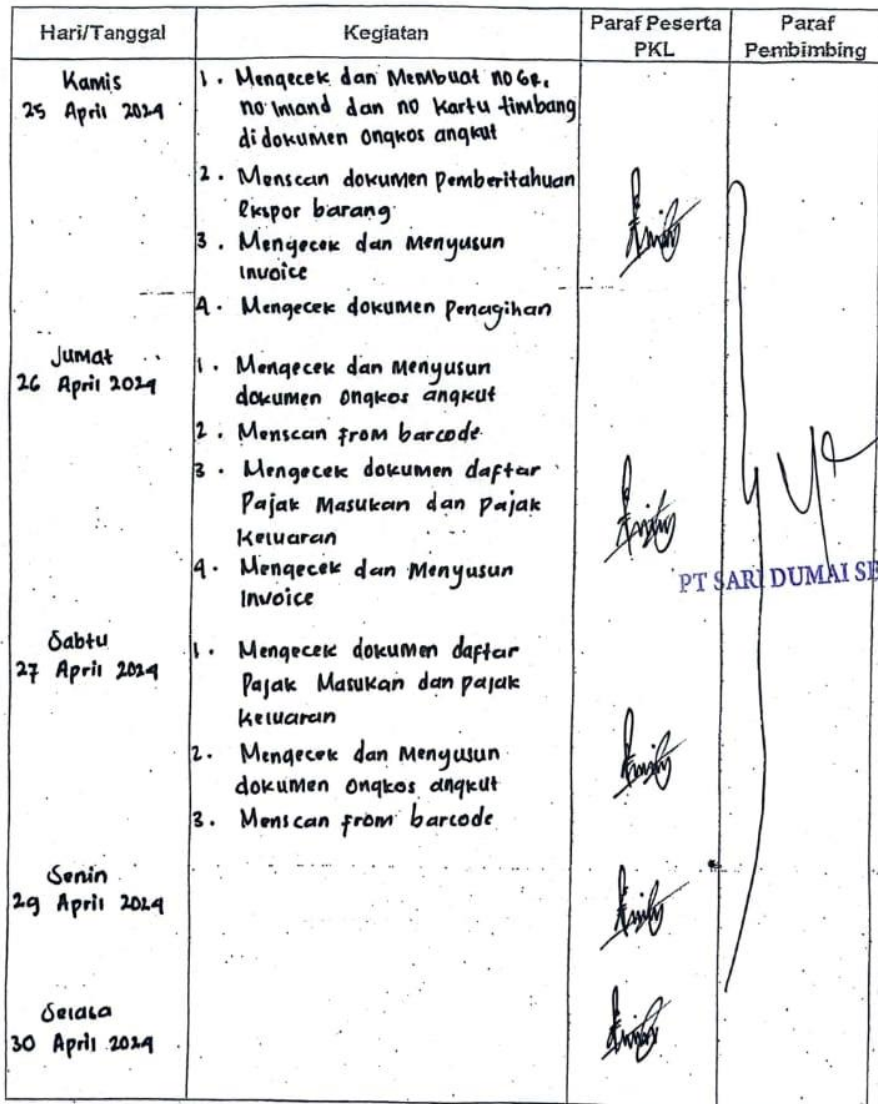 Hari/Tanggal Kegiatan Paraf Peserta PKL Paraf Pembimbing
Kamis
25 April 2024
1. Mengecek dan Membuat no Gr.
no inland dan no kartu timbang
di dokumen ongkos angkut
2. Menscan dokumen Pemberitahuan
Ekspor barang
3. Mengecek dan Menyusun
Invoice
4. Mengecek dokumen Penagihan
Jumat
26 April 2024
1. Mengecek dan Menyusun
dokumen ongkos angkut
2. Menscan from barcode
3. Mengecek dokumen daftar
Pajak Masukan dan pajak
Keluaran
4. Mengecek dan Menyusun
Invoice
PT SARI DUMAI SE
Sabtu
27 April 2024
1. Mengecek dokumen daftar
Pajak Masukan dan pajak
Keluaran
2. Mengecek dan Menyusun
dokumen ongkos angkut
3. Menscan from barcode
Senin
29 April 2024
Selasa
30 April 2024